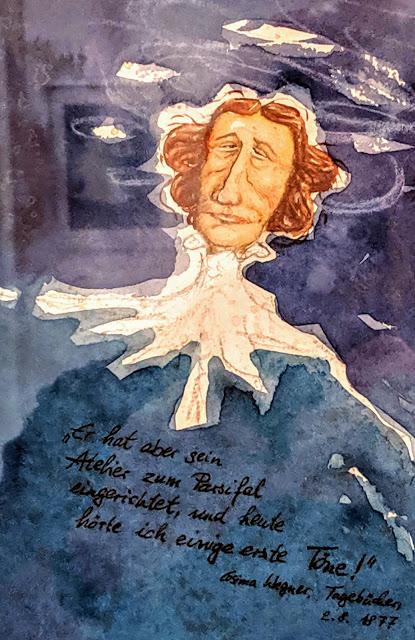 „Er hat aber sein
Atelier zum Parsifal
eingerichtet, und heute
hörte ich einige erste Töne!"
Cosima Wagner, Tagebücher,
2.8. 1877